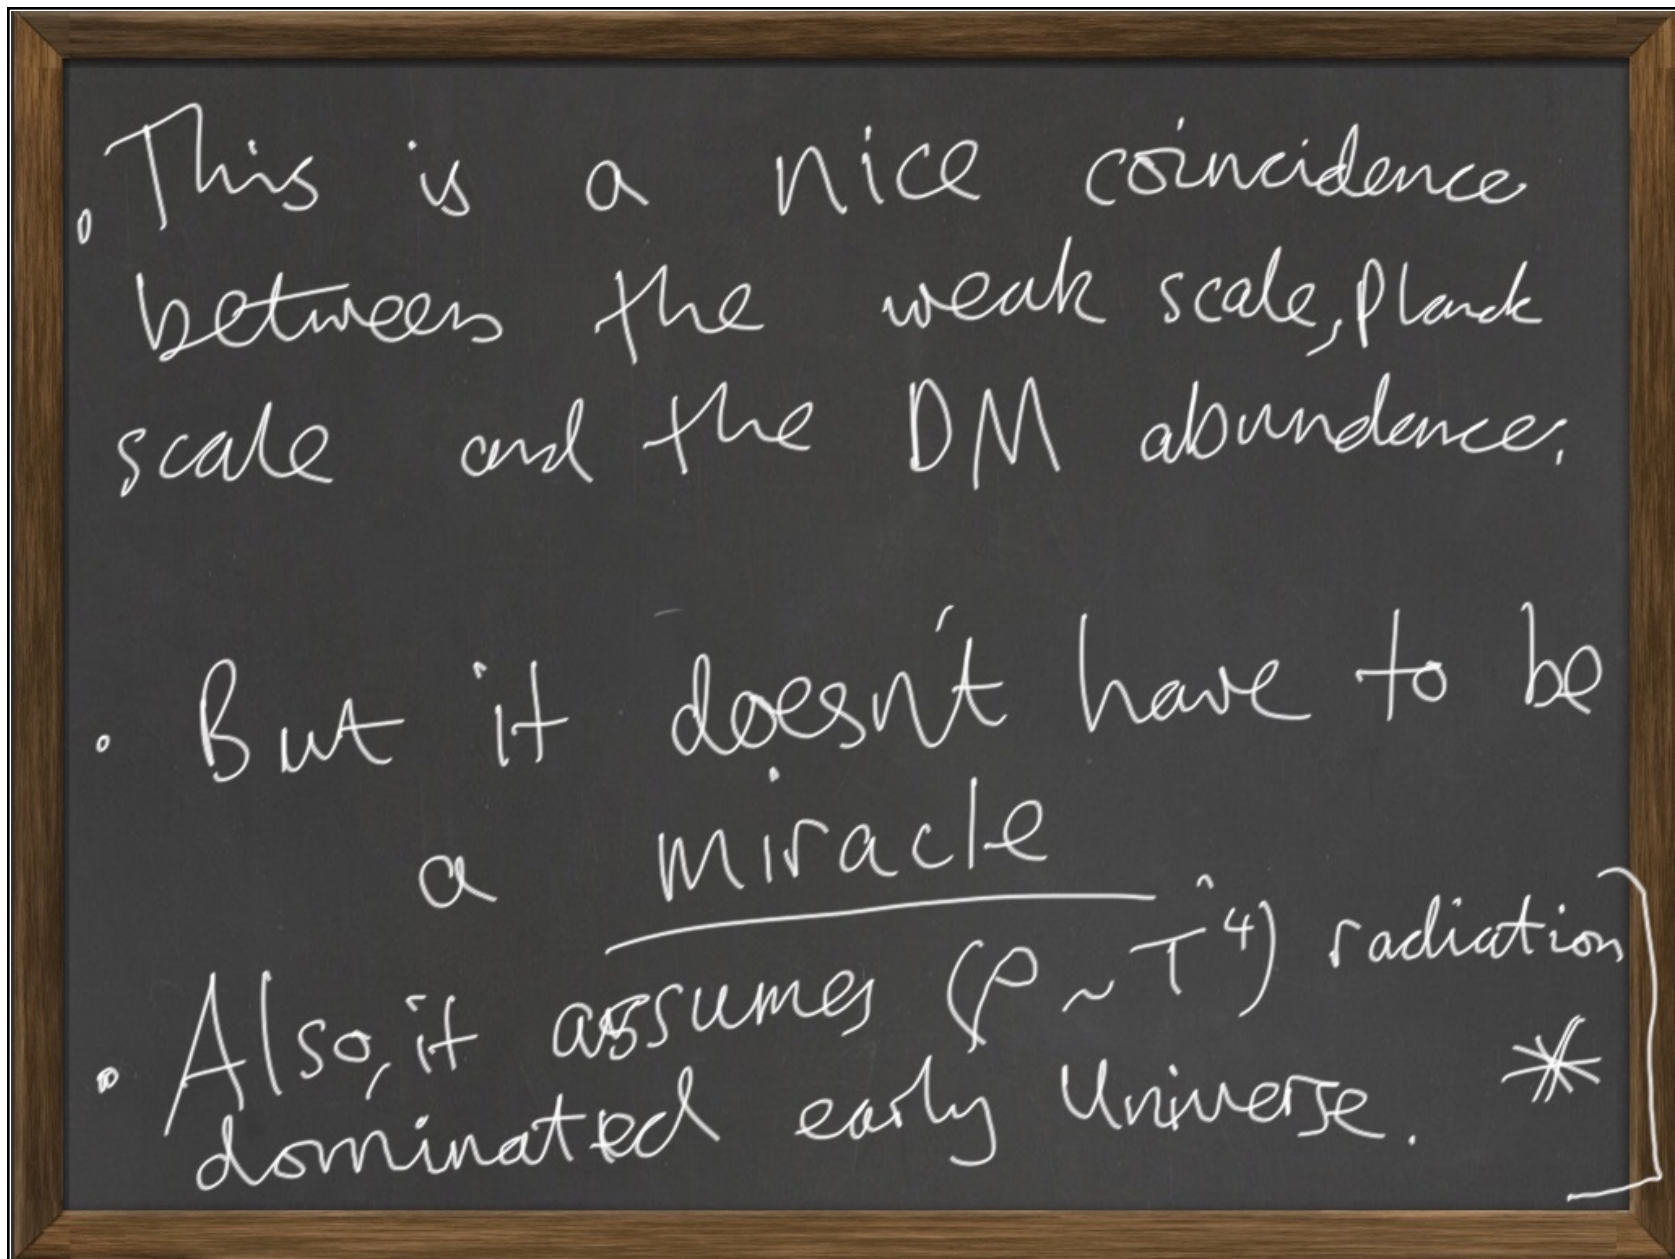 • This is a nice coincidence
between the weak scale, Planck
scale and the DM abundance.
• But it doesn't have to be
a miracle
• Also, it assumes (ρ ~ T^4) radiation
dominated early Universe. *